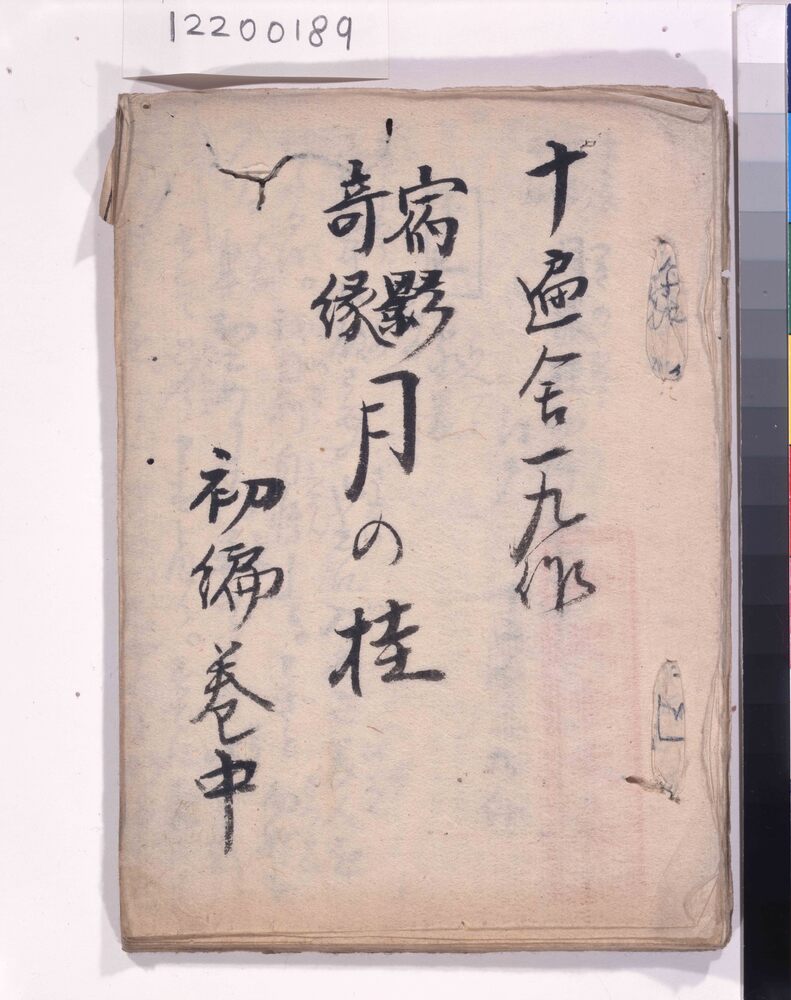 12200189
十遍舎一九作
宿影奇縁月の桂
初編巻中